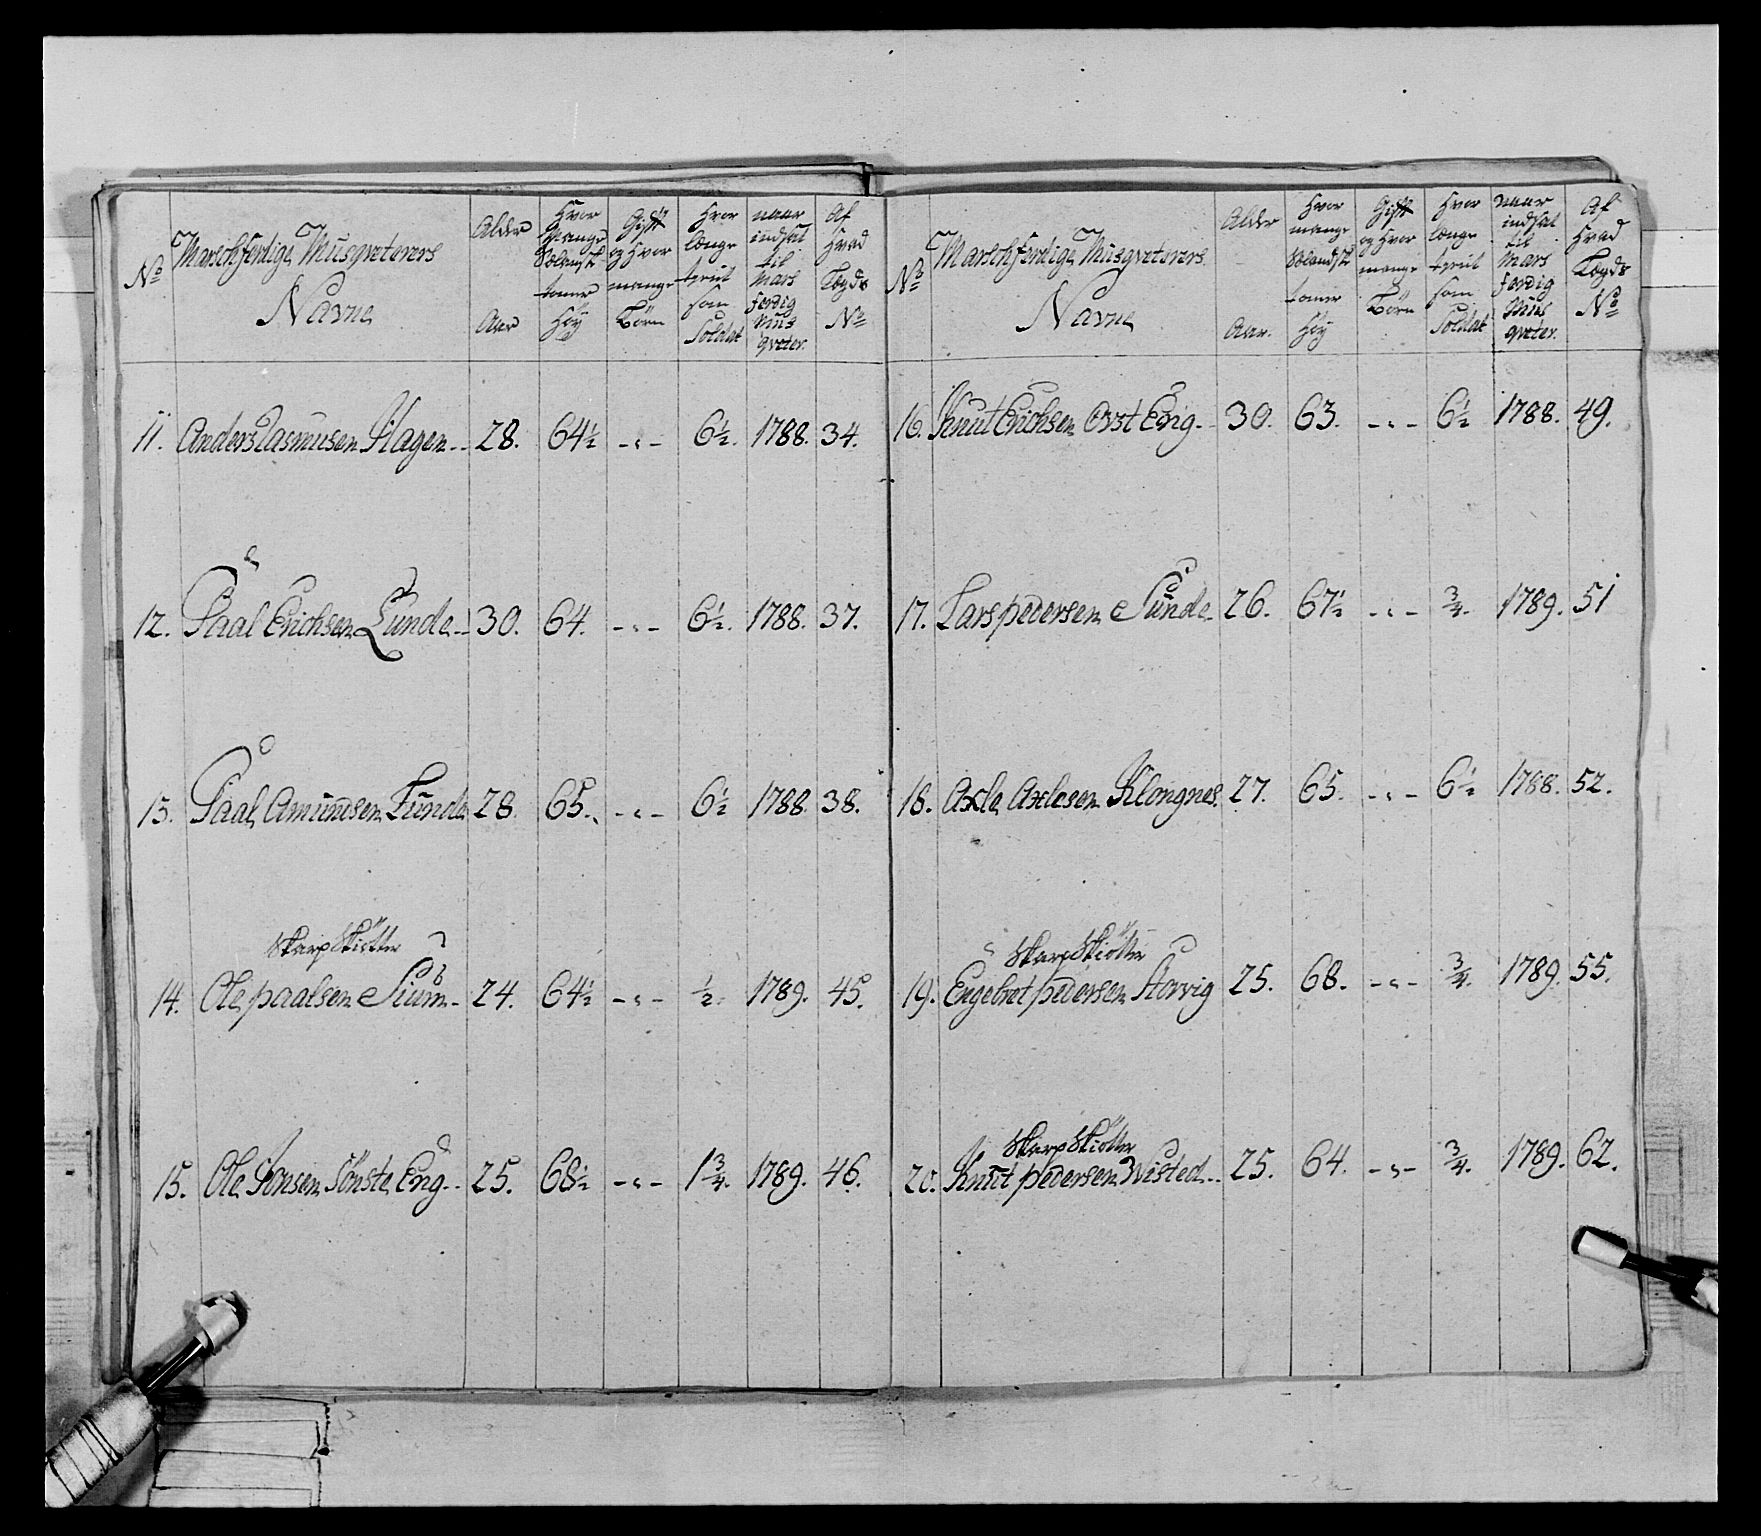 No
Marschferdige Musqveterers
Navne
Alder
Aar
Hvor
mange
Sælandsk
tomer
Höy
Gift
og hvor
mange
Börn
Hvor
længe
tient
som
Soldat
naar
indsat
til
Mars
ferdig
Mus
qveter.
Af
Hvad
Legds
No
11. Anders Rasmusen Hagen 28. 64½ - " - 6½. 1788. 34.
12. Paal Erichsen Lunde 30. 64. - " - 6½. 1788. 37.
13. Paal Amundsen Lunde 28. 65. - " - 6½ 1788. 38.
Skarp Skiötter
14. Ole paalsen Sium 24. 64½ - " - ½. 1789. 45.
15. Ole Jonsen Sönste Eng 25. 68½ - " - 1¾. 1789. 46.
No
Marschferdige Musqveterers
Navne
Alder
Aar.
Hvor
mange
Sælandsk
tomer
Höy
Gift
og Hvor
mange
Börn
Hvor
længe
tient
som
Soldat
naar
indsat
til
Mars
ferdig
Mus
qveter.
Af
Hvad
Legds
No
16. Knut Erichsen Ovst Eng 30. 63. - " - 6½ 1788. 49.
17. Lars pedersen Sunde 26. 67½ - " - ¾. 1789. 51
18. Axle Axlesen Klongnes 27. 65. - " - 6½ 1788. 52.
Skarp Skiötter
19. Engebret pedersen Storvig 25. 68. - " - ¾. 1789. 55.
Skarp Skiötter
20. Knut pedersen Wisted 25. 64. - " - ¾. 1789. 62.